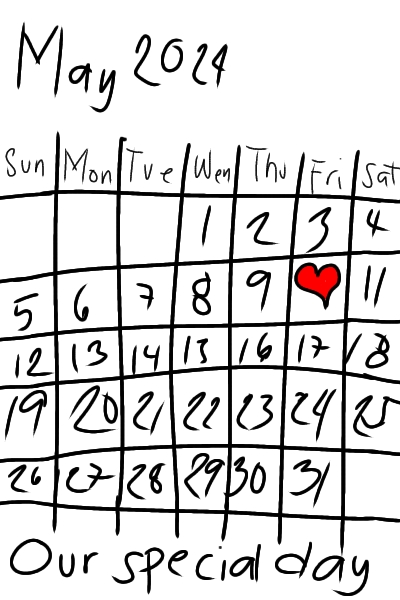 May 2024
Sun Mon Tue Wen Thu Fri Sat
1 2 3 4
5 6 7 8 9 11
12 13 14 15 16 17 18
19 20 21 22 23 24 25
26 27 28 29 30 31
Our special day